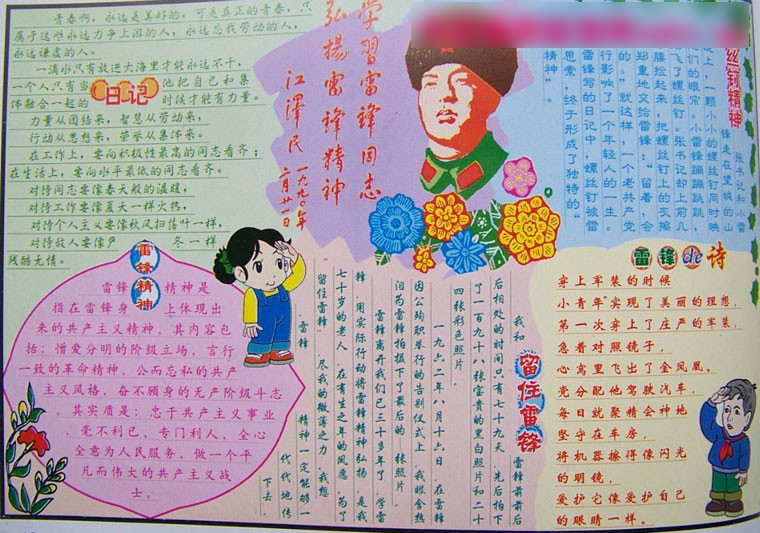 青春啊，永远是美好的，可是真正的青春，只
属于这些永远力争上游的人，永远忘我劳动的人，
永远谦虚的人。
一滴水只有放进大海里才能永远不干，
一个人只有当他把自己和集
体融合一起的时候才能有力量。
日记
力量从团结来，智慧从劳动来，
行动从思想来，荣誉从集体来。
在工作上，要向积极性最高的同志看齐；
在生活上，要向水平最低的同志看齐。
对待同志要像春天般的温暖，
对待工作要像夏天一样火热，
对待个人主义要像秋风扫落叶一样，
对待敌人要像严冬一样
残酷无情。
学習雷锋同志
弘揚雷锋精神
江澤民
一九九〇年
二月廿一日
丝钉精神
张书记和小雷
锋走在望城的山
上，一颗小小的螺丝钉同时映
们的眼帘。小雷锋蹦蹦跳跳
飞了螺丝钉。张书记却上前几
腰捡起来，把螺丝钉上的灰擦
郑重地交给雷锋："留着，会
的。"就这样，一个老共产党
行影响了一个年轻人的一生。
雷锋写的日记中，螺丝钉被雷
思索，终于形成了独特的"
精神"。
雷锋精神
雷锋精神是
指在雷锋身上体现出
来的共产主义精神。其内容包
括：憎爱分明的阶级立场、言行
一致的革命精神、公而忘私的共产
主义风格、奋不顾身的无产阶级斗志
。其实质是：忠于共产主义事业
，毫不利己、专门利人、全心
全意为人民服务，做一个平
凡而伟大的共产主义战
士。
留住雷锋
我和雷锋前前后
后相处的时间只有七十九天，先后拍下
了一百九十八张宝贵的黑白照片和二十
四张彩色照片。
一九六二年八月十六日，在雷锋
因公殉职举行的告别仪式上，我眼含热
泪为雷锋拍摄下了最后的一张照片。
雷锋离开我们已三十多年了，学雷
锋，用实际行动将雷锋精神弘扬，是我
七十岁的老人，在有生之年的夙愿。为了
留住雷锋，尽我的微薄之力，我想
，雷锋精神一定能够一
代代地传
下去。
雷锋de诗
穿上军装的时候
小青年实现了美丽的理想，
第一次穿上了庄严的军装，
急着对照镜子，
心窝里飞出了金凤凰。
党分配他驾驶汽车，
每日就聚精会神地
坚守在车房，
将机器擦得像闪光
的明镜，
爱护它像爱护自己
的眼睛一样。